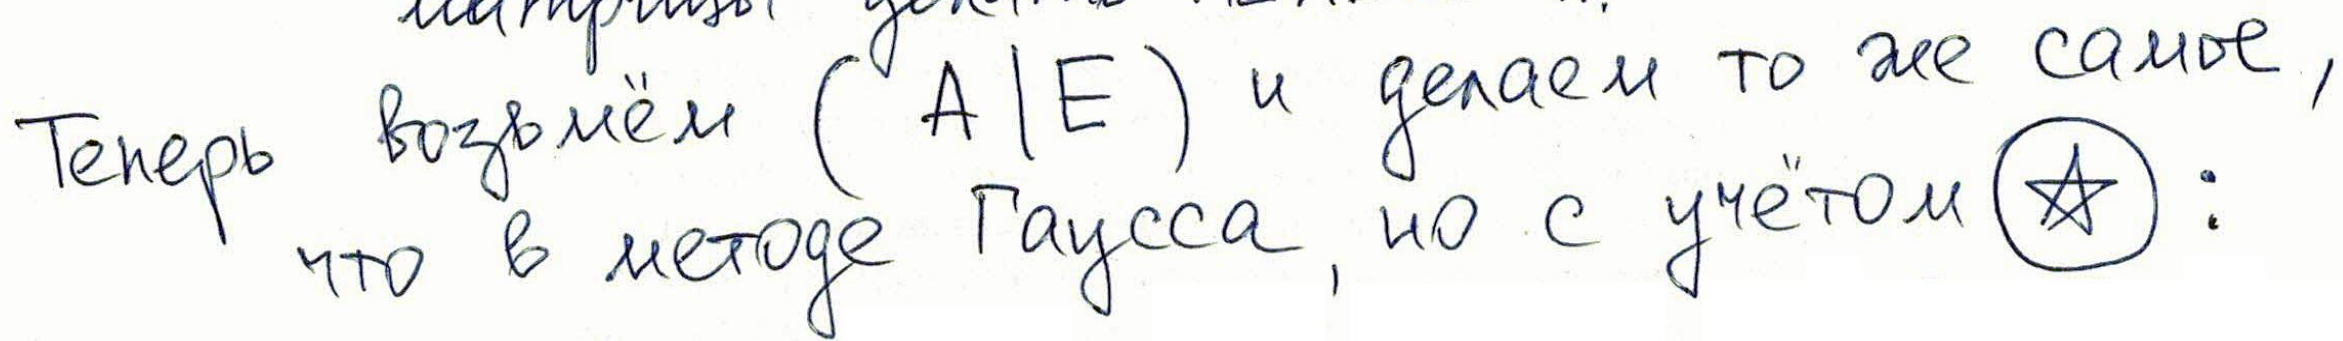 матрицы
Теперь возьмём (A|E) и делаем то же самое,
что в методе Гаусса, но с учётом ☆: